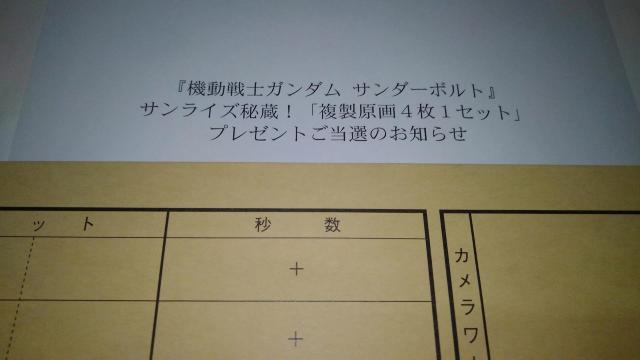 『機動戦士ガンダム サンダーボルト』
サンライズ秘蔵！「複製原画４枚１セット」
プレゼントご当選のお知らせ
ット
秒数
＋
＋
カメラワ